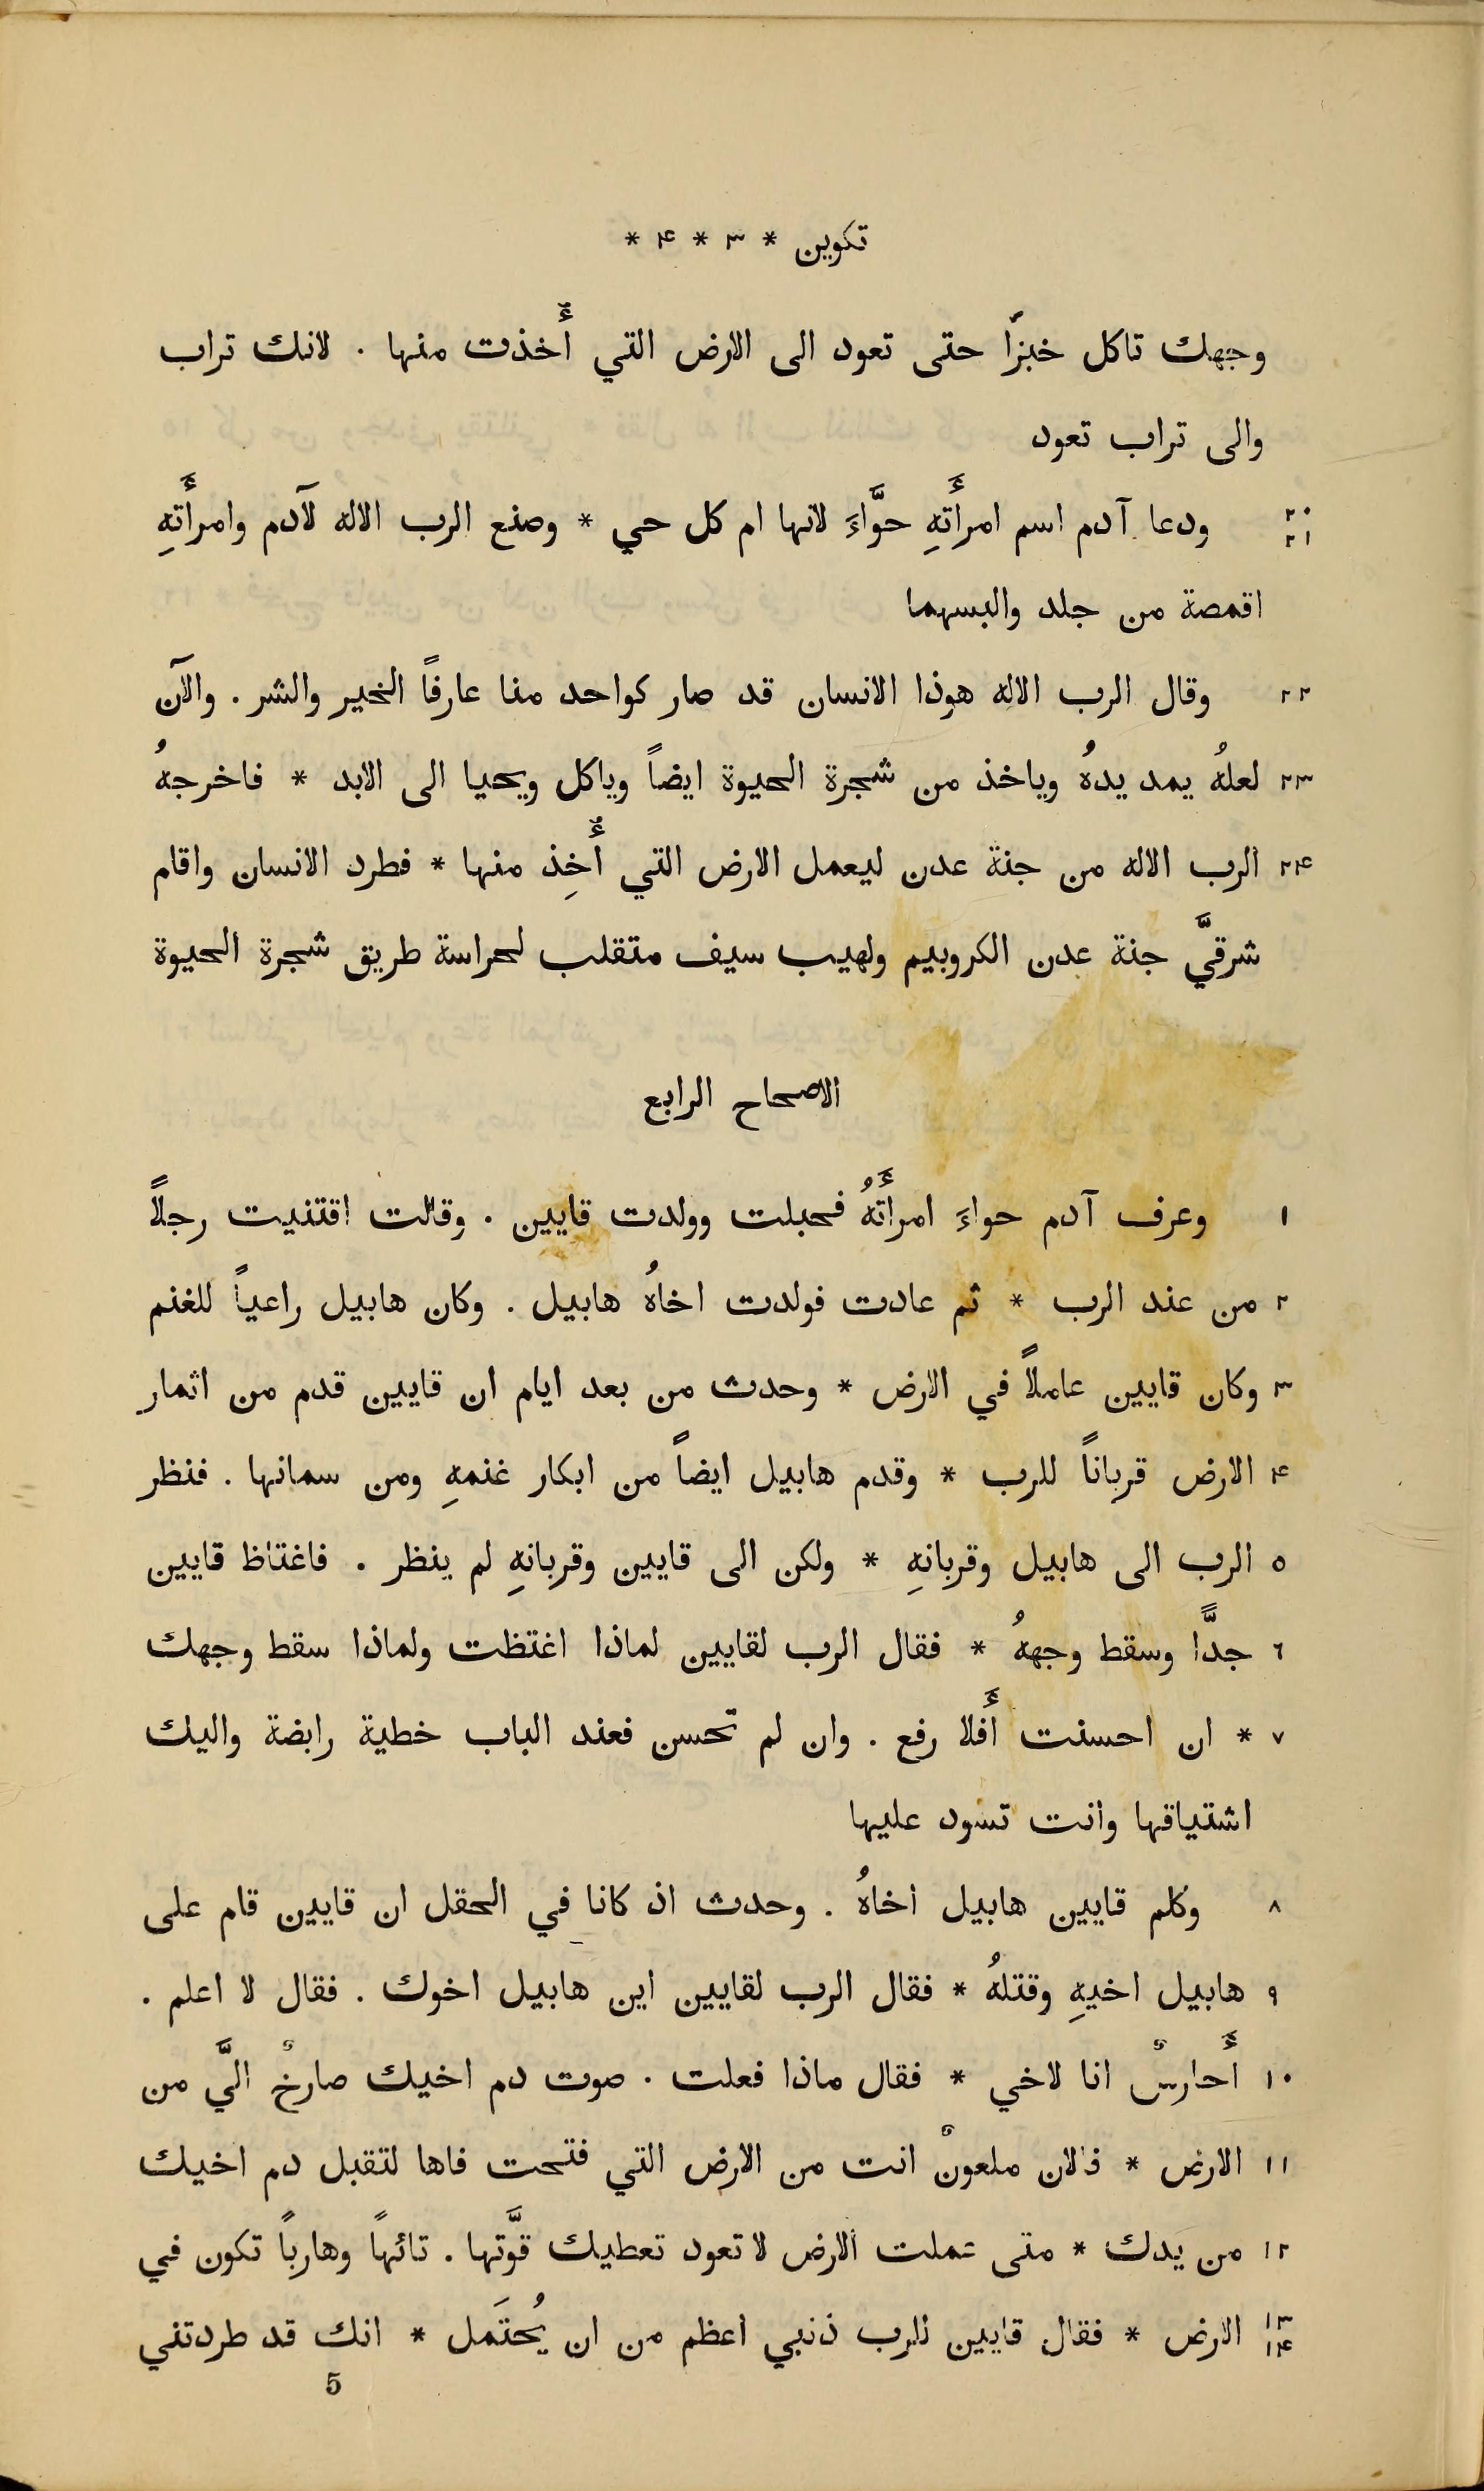 تكوين * ٣ * ۴ *
وجهك تاكل خبزًا حتى تعود الى الارض التي أُخذت منها . لانك تراب
والى تراب تعود
٢٠ ٢١ ودعا آدم اسم امرأَتهِ حوَّاءَ لانها ام كل حي * وصنع الرب الاله لآدم وامرأَتهِ
اقمصة من جلد والبسهما
٢٢ وقال الرب الاله هوذا الانسان قد صار كواحد منا عارفاً الخير والشر . والآن
٢٣ لعلهُ يمد يدهُ وياخذ من شجرة الحيوة ايضاً وياكل ويحيا الى الابد * فاخرجهُ
٢۴ الرب الاله من جنة عدن ليعمل الارض التي أُخِذ منها * فطرد الانسان واقام
شرقيَّ جنة عدن الكروبيم ولهيب سيف متقلب لحراسة طريق شجرة الحيوة
الاصحاح الرابع
١ وعرف آدم حواءَ امرأَتهُ فحبلت وولدت قايين . وقالت اقتنيت رجلاً
٢ من عند الرب * ثم عادت فولدت اخاهُ هابيل . وكان هابيل راعياً للغنم
٣ وكان قايين عاملاً في الارض * وحدث من بعد ايام ان قايين قدم من اثمار
۴ الارض قرباناً للرب * وقدم هابيل ايضاً من ابكار غنمهِ ومن سمانها . فنظر
٥ الرب الى هابيل وقربانهِ * ولكن الى قايين وقربانهِ لم ينظر . فاغتاظ قايين
٦ جدًّا وسقط وجههُ * فقال الرب لقايين لماذا اغتظت ولماذا سقط وجهك
٧ * ان احسنت أَفلا رفع . وان لم تحسن فعند الباب خطية رابضة واليك
اشتياقها وانت تسود عليها
٨ وكلم قايين هابيل اخاهُ . وحدث اذ كانا في الحقل ان قايين قام على
٩ هابيل اخيهِ وقتلهُ * فقال الرب لقايين اين هابيل اخوك . فقال لا اعلم .
١٠ أَحارسٌ انا لاخي * فقال ماذا فعلت . صوت دم اخيك صارخٌ اليَّ من
١١ الارض * فالان ملعونٌ انت من الارض التي فتحت فاها لتقبل دم اخيك
١٢ من يدك * متى عملت الارض لا تعود تعطيك قوَّتها . تائهاً وهارباً تكون في
١٣ ١۴ الارض * فقال قايين للرب ذنبي اعظم من ان يُحتَمل * انك قد طردتني
5